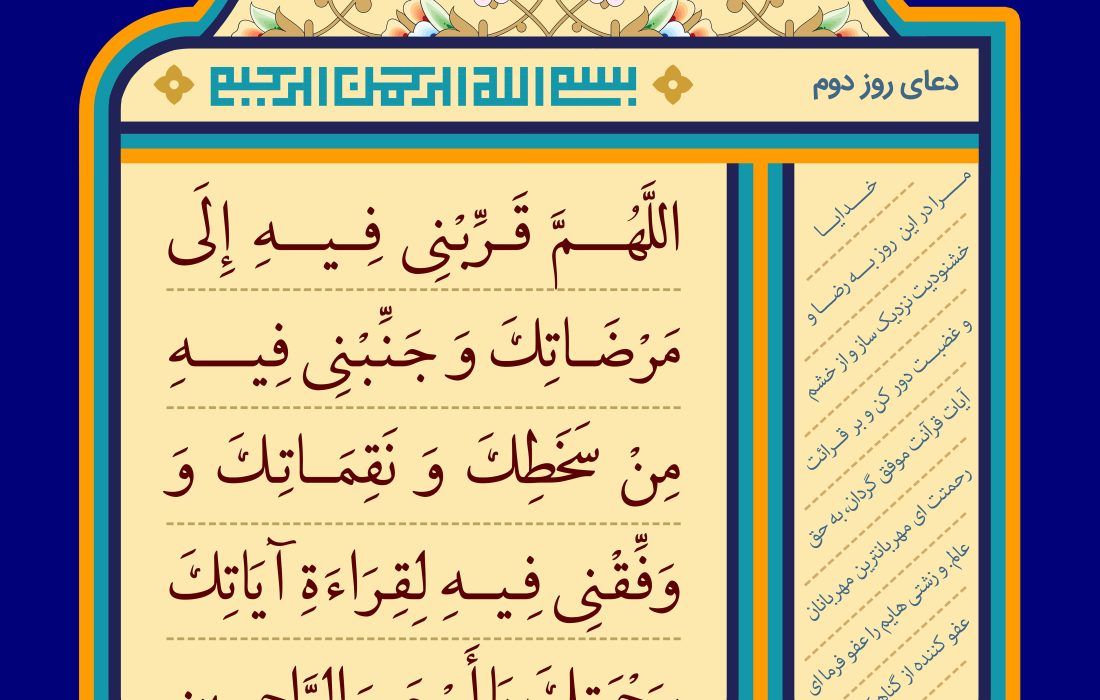 دعای روز دوم
بسم الله الرحمن الرحیم
اللَّهُمَّ قَرِّبْنِی فِیهِ إِلَی
مَرْضَاتِكَ وَ جَنِّبْنِی فِیهِ
مِنْ سَخَطِكَ وَ نَقِمَاتِكَ وَ
وَفِّقْنِی فِیهِ لِقِرَاءَةِ آیَاتِكَ
خدایا
مرا در این روز به رضا و
خشنودیت نزدیک ساز و از خشم
و غضبت دور کن و بر قرائت
آیات قرآنت موفق گردان، به حق
رحمتت ای مهربانترین مهربانان
عالم. و زشتی هایم را عفو فرما ای
عفو کننده از